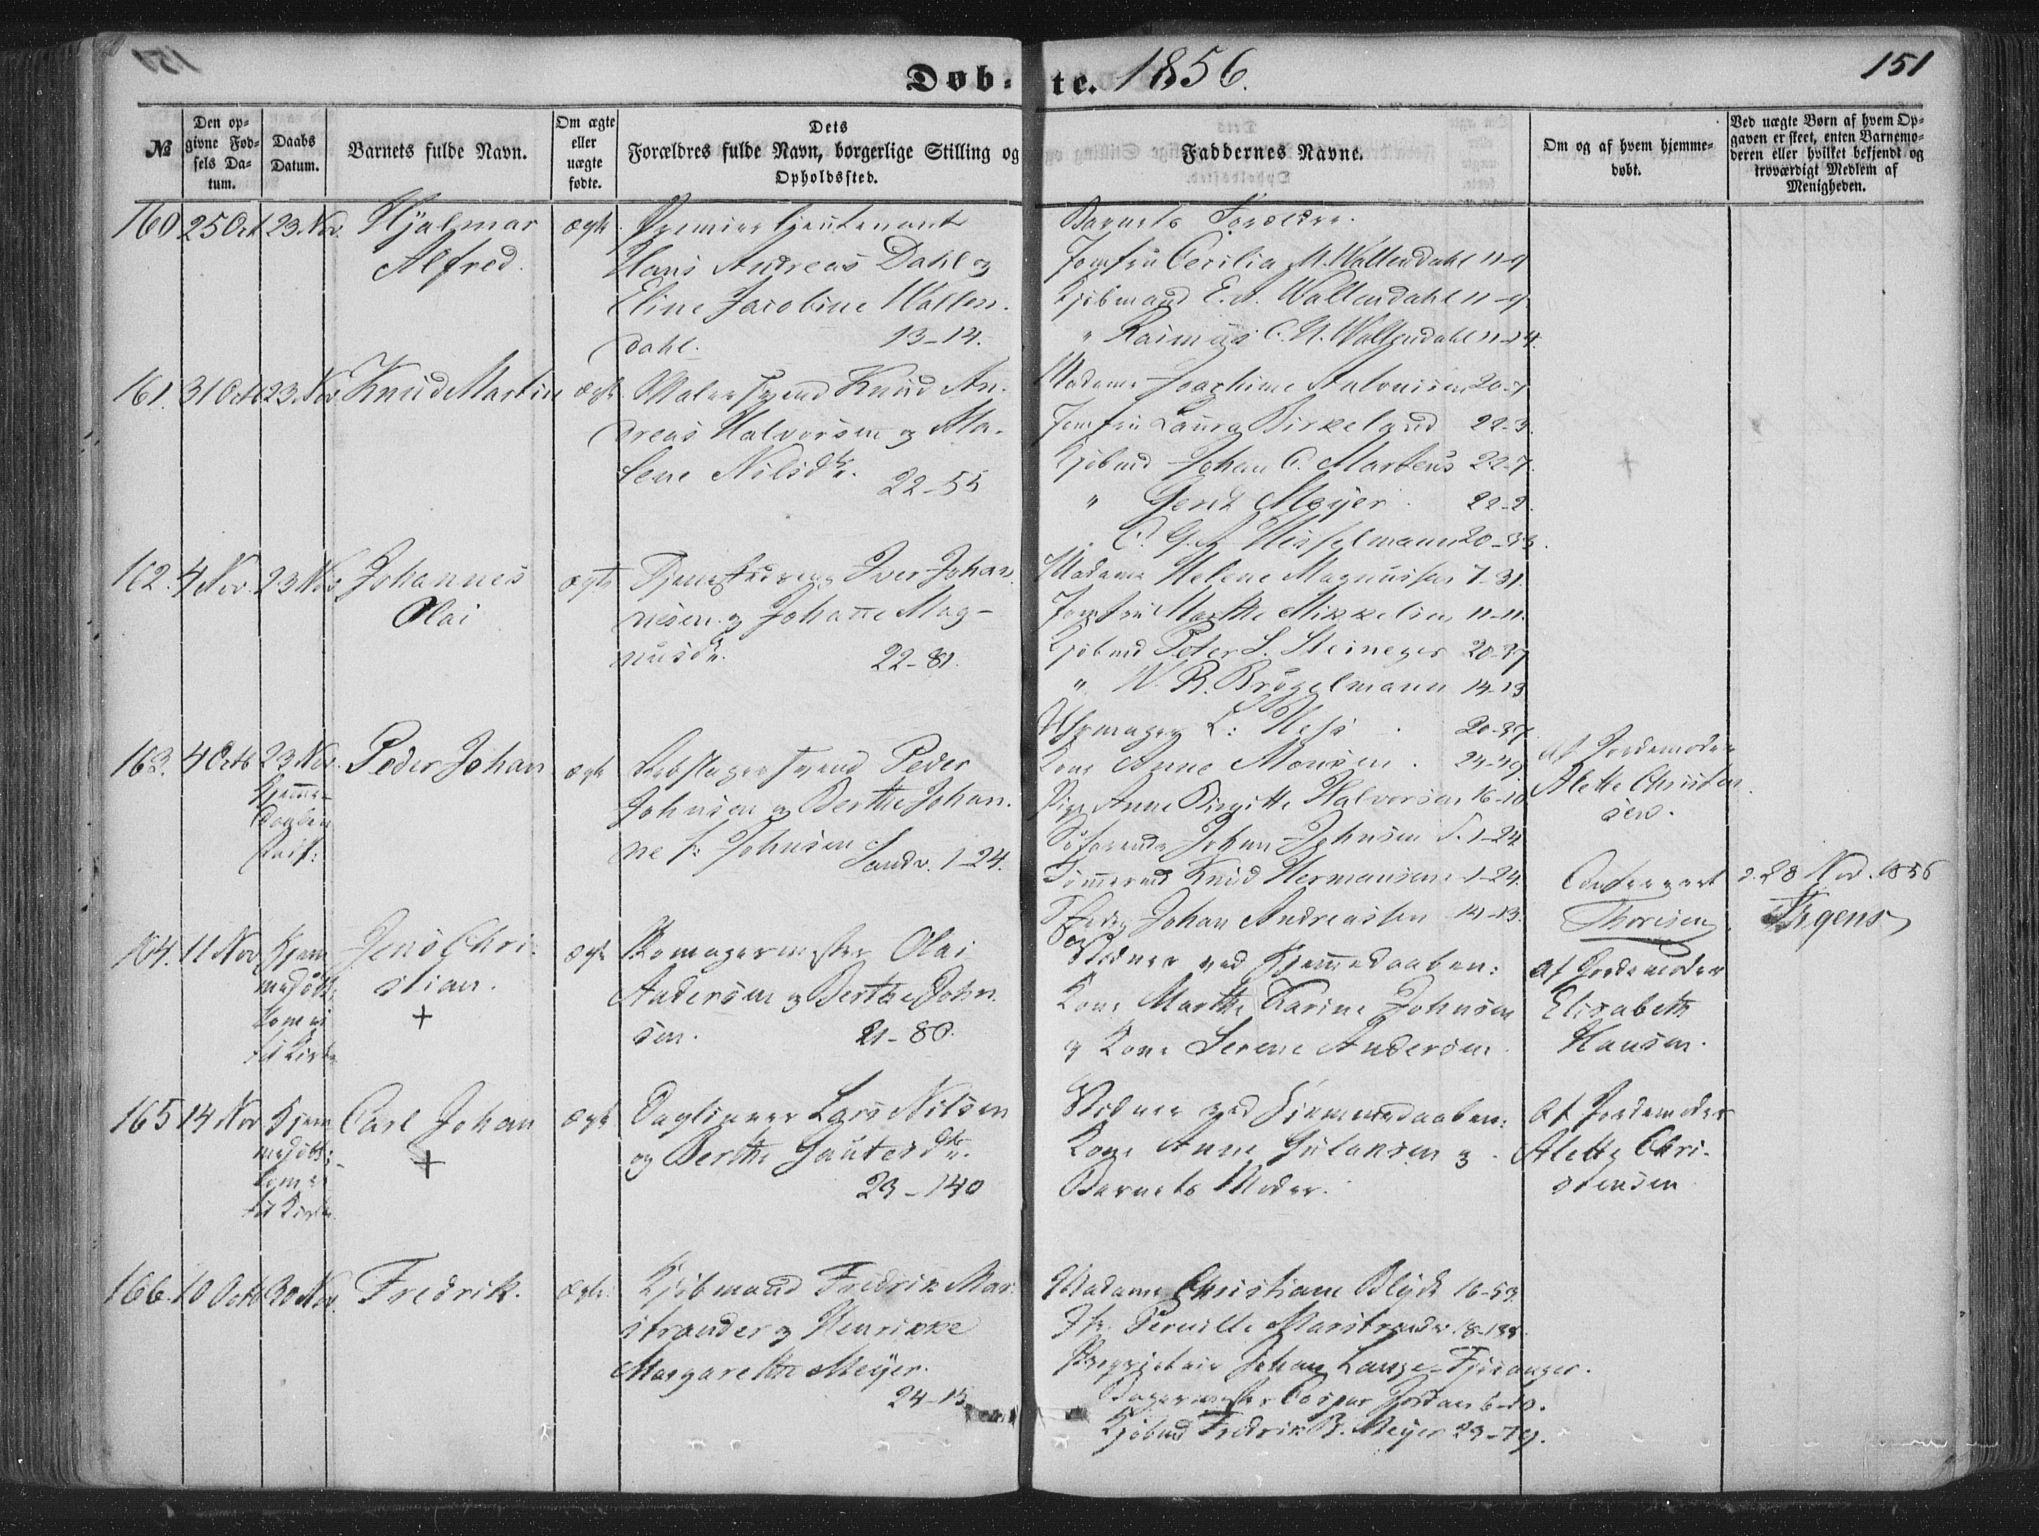 Døb-te. 1856.
151
№
Den opgivne Fødsels Datum.
Daabs Datum.
Barnets fulde Navn.
Om ægte eller uægte fødte.
Dets Forældres fulde Navn, borgerlige Stilling og Opholdssted.
Faddernes Navne.
Om og af hvem hjemmedøbt.
Ved uægte Børn af hvem Opgaven er skeet, enten Barnemoderen eller hvilket bekjendt og troværdigt Medlem af Menigheden.
160 25 Oct 23 Nov. Hjalmar
Alfred.
ægte
Premierlieutenant
Hans Andreas Dahl og
Eline Jacobine Wallen-
dahl. 13-14.
Barnets Forældre.
Jomfru Cecilia M. Wallendahl 11-9
Kjøbmand E. A. Wallendahl 11-9
" Rasmus C. N. Wallendahl 11-14.
161. 31 Octb 23 Nov Knud Martin
ægte
Malersvend Knud An-
dreas Halvorsen og Ma-
lene Nilsdtr. 22-55
Madame Joachime Antonisen 20-7
Jomfru Laura Birkeland 22-3.
Kjøbmd Johan C. Martens 22-7.
" Gerd Meyer. 22-2
C. G. A. Hesselmann 20-33.
162. 4 Nov. 23 Nov Johannes
Olai
ægte
Tjenestedreng Iver Johan-
nesen og Johanne Mag-
nusdtr. 22-81.
Madame Helene Magnussen 7-31.
Jomfru Marthe Mikkelsen 11-11.
Kjøbmd Peter S. Steineger 20-37
" N. R. Brøgelmann 14-13
Uhrmager L: Hess. 20-37
163. 4 Octb 23 Nov. Peder Johan
Hjemme-
daaben
ægte
Rebslagersvend Peder
Johnsen og Berthe Johan-
ne f: Johnsen Sandv. 1-24.
Kone Anne Monsen. 24-49
Pige Anne Birgitte Halvorsen 16-10
Søfarende Johan Johnsen S. 1-24
Tømmermd Knud Hermansen 1-24.
Johan Andreassen 14-13.
af Jordemoder
Alette Christen-
sen.
Thoresen
d. 28 Nov. 1856
164. 11 Nov Hjem-
medøbt;
kom ei
til Kirke
Jens Chri-
stian.
+
ægte
Skomagermester Olai
Andersen og Berthe John-
sen. 21-80.
Vidner ved Hjemmedaaben:
Kone Marthe Karine Johnsen
og Kone Serene Andersen
af Jordemoder
Elisabeth
Hansen.
165 14 Nov Hjem-
medøbt;
kom ei
til Kirke
Carl Johan
+
ægte
Dagleier Lars Nilsen
og Berthe Gautesdtr.
23-140
Vidner ved Hjemmedaaben:
Kone Anne Gulaksen og
Barnets Moder.
af Jordemoder
Alette Chri-
stensen
166. 10 Octb 30 Nov. Fredrik.
ægte.
Kjøbmand Fredrik Mar-
strander og Henrikke
Margarethe Meyer.
24-15
Madame Christiane Blydt 16-53.
Jfr. Pernille Marstrander 18-138.
Proprietair Johan Lange Fjøsanger.
Bagermester Casper Jordan 6-10.
Kjøbmd Fredrik B. Meyer 23-79.